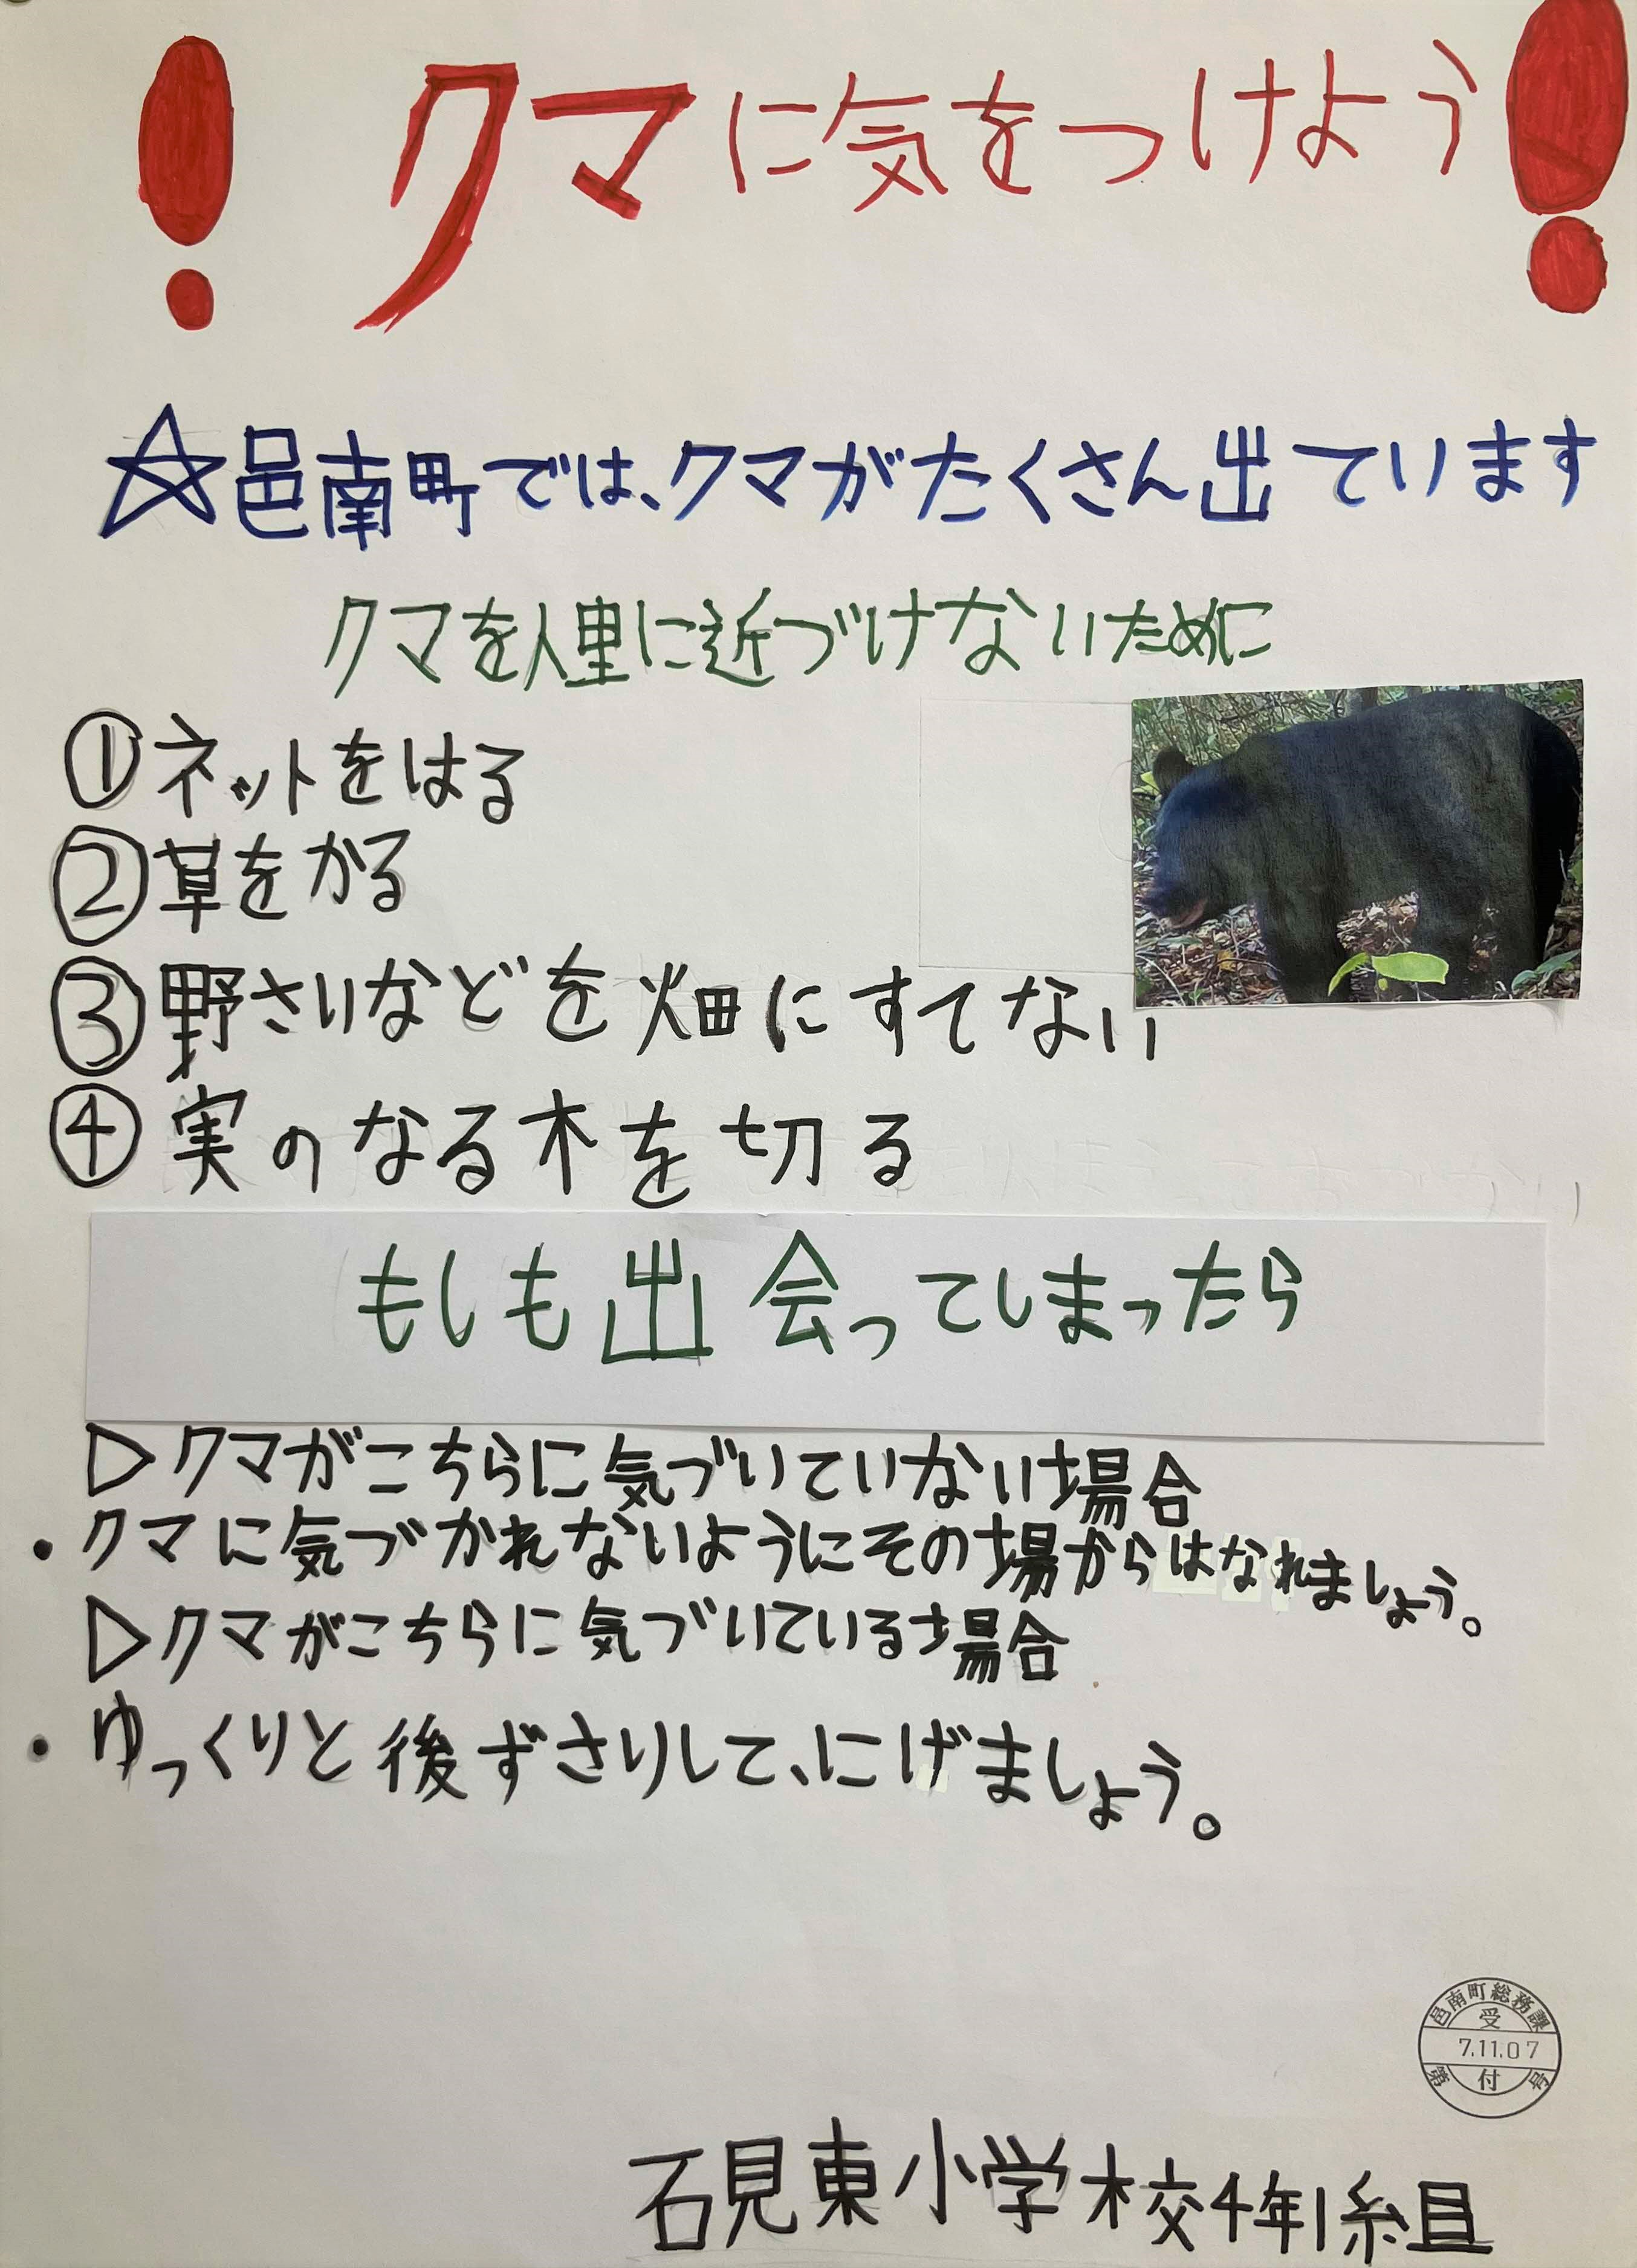 ！クマに気をつけよう！
☆邑南町では、クマがたくさん出ています
クマを人里に近づけないために
①ネットをはる
②草をかる
③野さいなどを畑にすてない
④実のなる木を切る
もしも出会ってしまったら
▷クマがこちらに気づいていない場合
・クマに気づかれないようにその場からはなれましょう。
▷クマがこちらに気づいている場合
・ゆっくりと後ずさりして、にげましょう。
邑南町総務課
受
7.11.07
第 付 号
石見東小学校4年1組